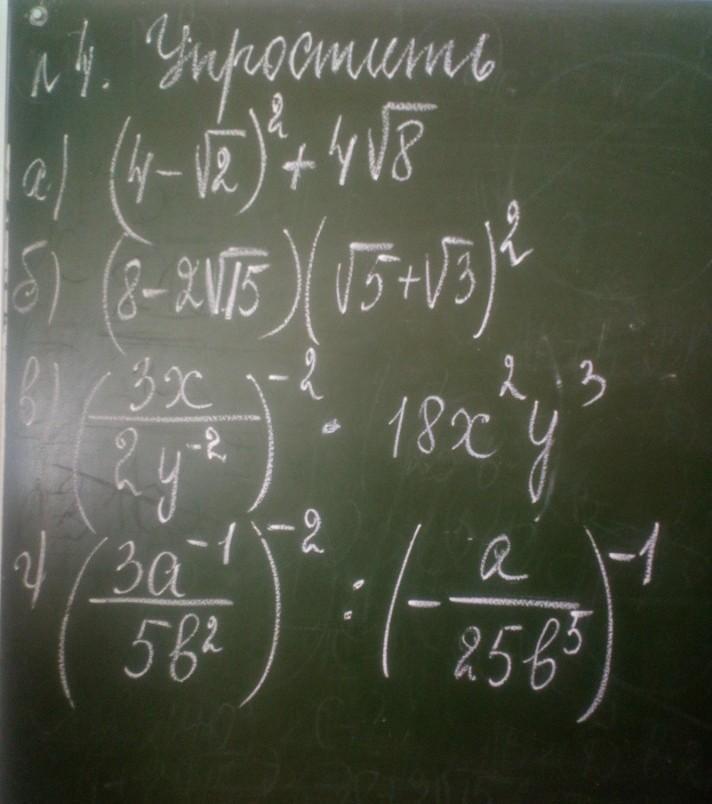 №4. Упростить
а) (4-√2)² + 4√8
б) (8-2√15)(√5+√3)²
в) (3x/2y⁻²)⁻² · 18x²y³
г) (3a⁻¹/5b²)⁻² : (-a/25b⁵)⁻¹